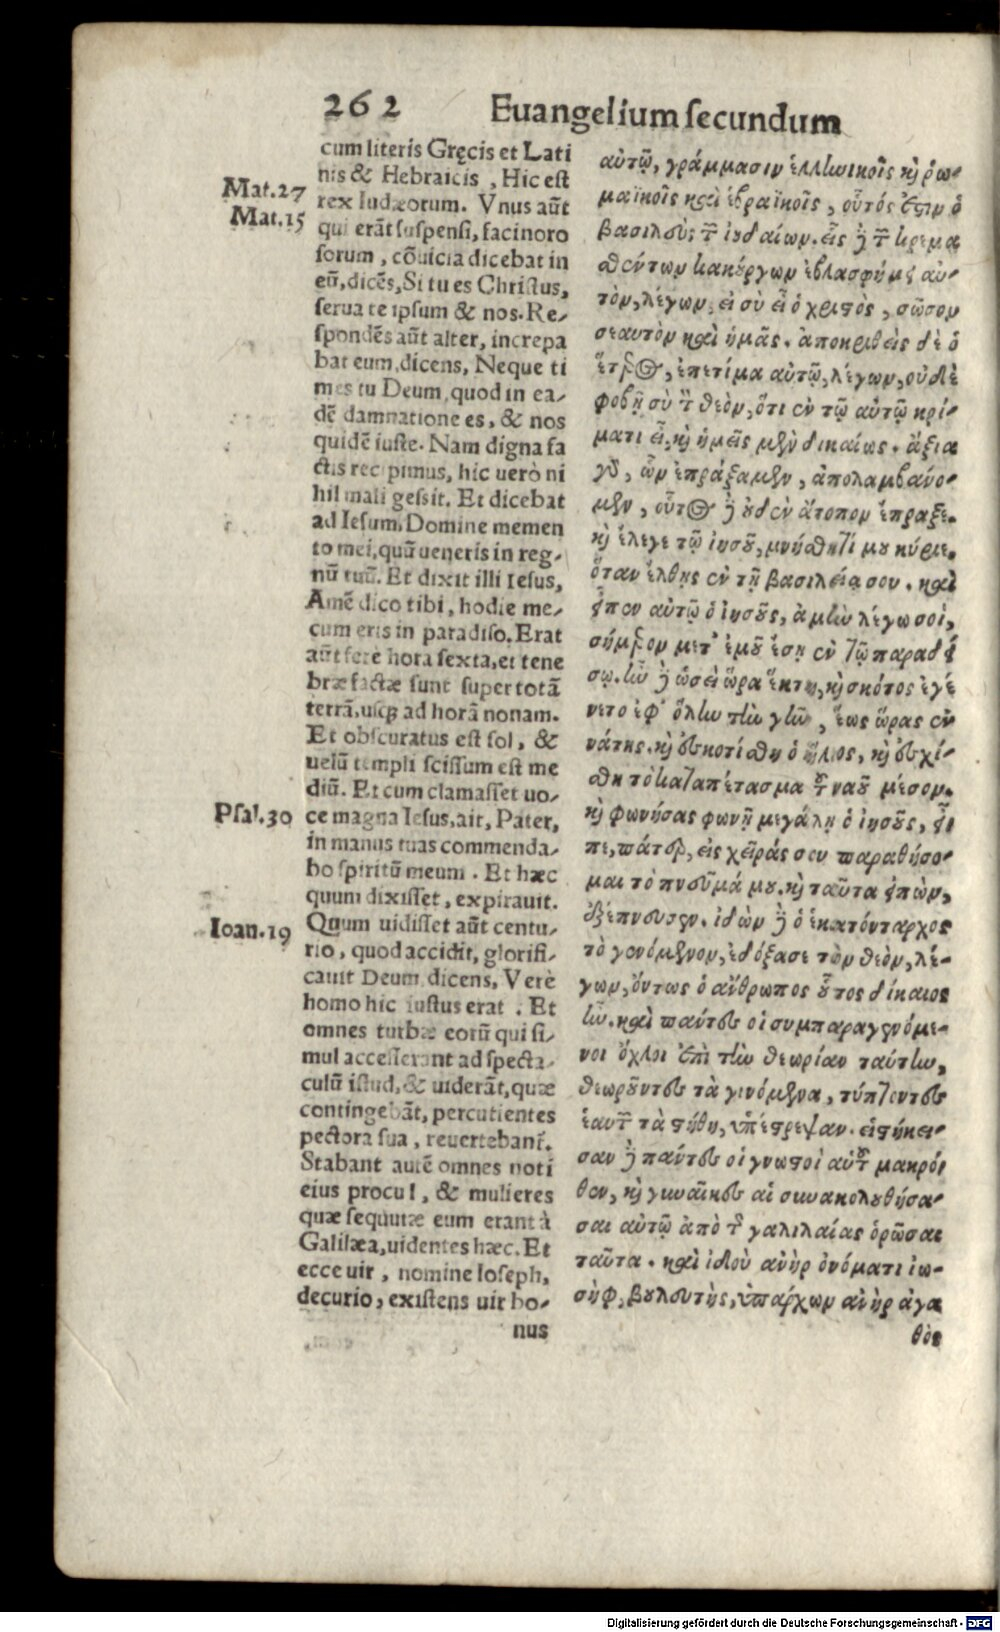 262 Euangelium ſecundum
cum literis Gręcis et Lati
nis & Hebraicis, Hic eſt
Mat.27
rex Iudæorum. Vnus aūt
Mat.15
qui erāt ſuſpenſi, facinoro
ſorum, cōuicia dicebat in
eū, dicēs, Si tu es Chriſtus,
ſerua te ipſum & nos. Re-
ſpondēs aūt alter, increpa
bat eum, dicens, Neque ti
mes tu Deum, quod in ea-
dē damnatione es, & nos
quidē iuſte. Nam digna fa
ctis recipimus, hic uerò ni
hil mali geſsit. Et dicebat
ad Ieſum, Domine memen
to mei, quū ueneris in reg-
nū tuū. Et dixit illi Ieſus,
Amē dico tibi, hodie me-
cum eris in paradiſo. Erat
aūt fere hora ſexta, et tene
bræ factæ ſunt ſuper totā
terrā, uſcp ad horā nonam.
Et obſcuratus eſt ſol, &
uelū templi ſciſſum eſt me
diū. Et cum clamaſſet uo-
Pſal.30
ce magna Ieſus, ait, Pater,
in manus tuas commenda-
bo ſpiritū meum. Et hæc
quum dixiſſet, expirauit.
Ioan.19
Quum uidiſſet aūt centu-
rio, quod accidit, glorifi-
cauit Deum dicens, Verè
homo hic iuſtus erat. Et
omnes turbæ eorū qui ſi-
mul acceſſerant ad ſpecta-
culū iſtud, & uiderāt, quæ
contingebāt, percutientes
pectora ſua, reuertebant̄.
Stabant autē omnes noti
eius procul, & mulieres
quæ ſequutæ eum erant à
Galilæa, uidentes hæc. Et
ecce uir, nomine Ioſeph,
decurio, exiſtens uir bo-
nus
αὐτῷ, γράμμασιν ἑλληνικοῖς κ̀ ῥω-
μαϊκοῖς καὶ ἑβραϊκοῖς, οὗτός ἐστιν ὁ
βασιλεὺς τῶν ἰουδαίων. εἷς δὲ τῶν κρεμα
σθέντων κακούργων ἐβλασφήμει αὐ-
τὸν, λέγων, εἰ σὺ εἶ ὁ χριστὸς, σῶσον
σεαυτὸν καὶ ἡμᾶς. ἀποκριθεὶς δὲ ὁ
ἕτερος, ἐπετίμα αὐτῷ, λέγων, οὐδὲ
φοβῇ σὺ τὸν θεὸν, ὅτι ἐν τῷ αὐτῷ κρί-
ματι εἶ, κ̀ ἡμεῖς μὲν δικαίως. ἄξια
γὰρ, ὧν ἐπράξαμεν, ἀπολαμβάνο-
μεν, οὗτος δὲ οὐδὲν ἄτοπον ἔπραξε.
κ̀ ἔλεγε τῷ ἰησοῦ, μνήσθητί μου κύριε.
ὅταν ἔλθῃς ἐν τῇ βασιλείᾳ σου. καὶ
εἶπεν αὐτῷ ὁ ἰησοῦς, ἀμὴν λέγω σοί,
σήμερον μετ' ἐμοῦ ἔσῃ ἐν τῷ παραδεί
σῳ. ἦν δὲ ὡσεὶ ὥρα ἕκτη, κ̀ σκότος ἐγέ
νετο ἐφ' ὅλην τὴν γῆν, ἕως ὥρας ἐν
νάτης. κ̀ ἐσκοτίσθη ὁ ἥλιος, κ̀ ἐσχί-
σθη τὸ καταπέτασμα τοῦ ναοῦ μέσον.
κ̀ φωνήσας φωνῇ μεγάλῃ ὁ ἰησοῦς, εἶ
πε, πάτερ, εἰς χεῖράς σου παραθήσο-
μαι τὸ πνεῦμά μου. κ̀ ταῦτα εἰπὼν,
ἐξέπνευσεν. ἰδὼν δὲ ὁ ἑκατόνταρχος
τὸ γενόμενον, ἐδόξασε τὸν θεὸν, λέ-
γων, ὄντως ὁ ἄνθρωπος οὗτος δίκαιος
ἦν. καὶ πάντες οἱ συμπαραγενόμε-
νοι ὄχλοι ἐπὶ τὴν θεωρίαν ταύτην,
θεωροῦντες τὰ γινόμενα, τύπτοντες
ἑαυτῶν τὰ στήθη, ὑπέστρεψαν. εἱστήκει-
σαν δὲ πάντες οἱ γνωστοὶ αὐτοῦ μακρό
θεν, κ̀ γυναῖκες αἱ συνακολουθήσα-
σαι αὐτῷ ἀπὸ τῆς γαλιλαίας ὁρῶσαι
ταῦτα. καὶ ἰδοὺ ἀνὴρ ὀνόματι ἰω-
σὴφ, βουλευτὴς, ὑπάρχων ἀνὴρ ἀγα
θὸς
Digitalisierung gefördert durch die Deutsche Forschungsgemeinschaft - DFG